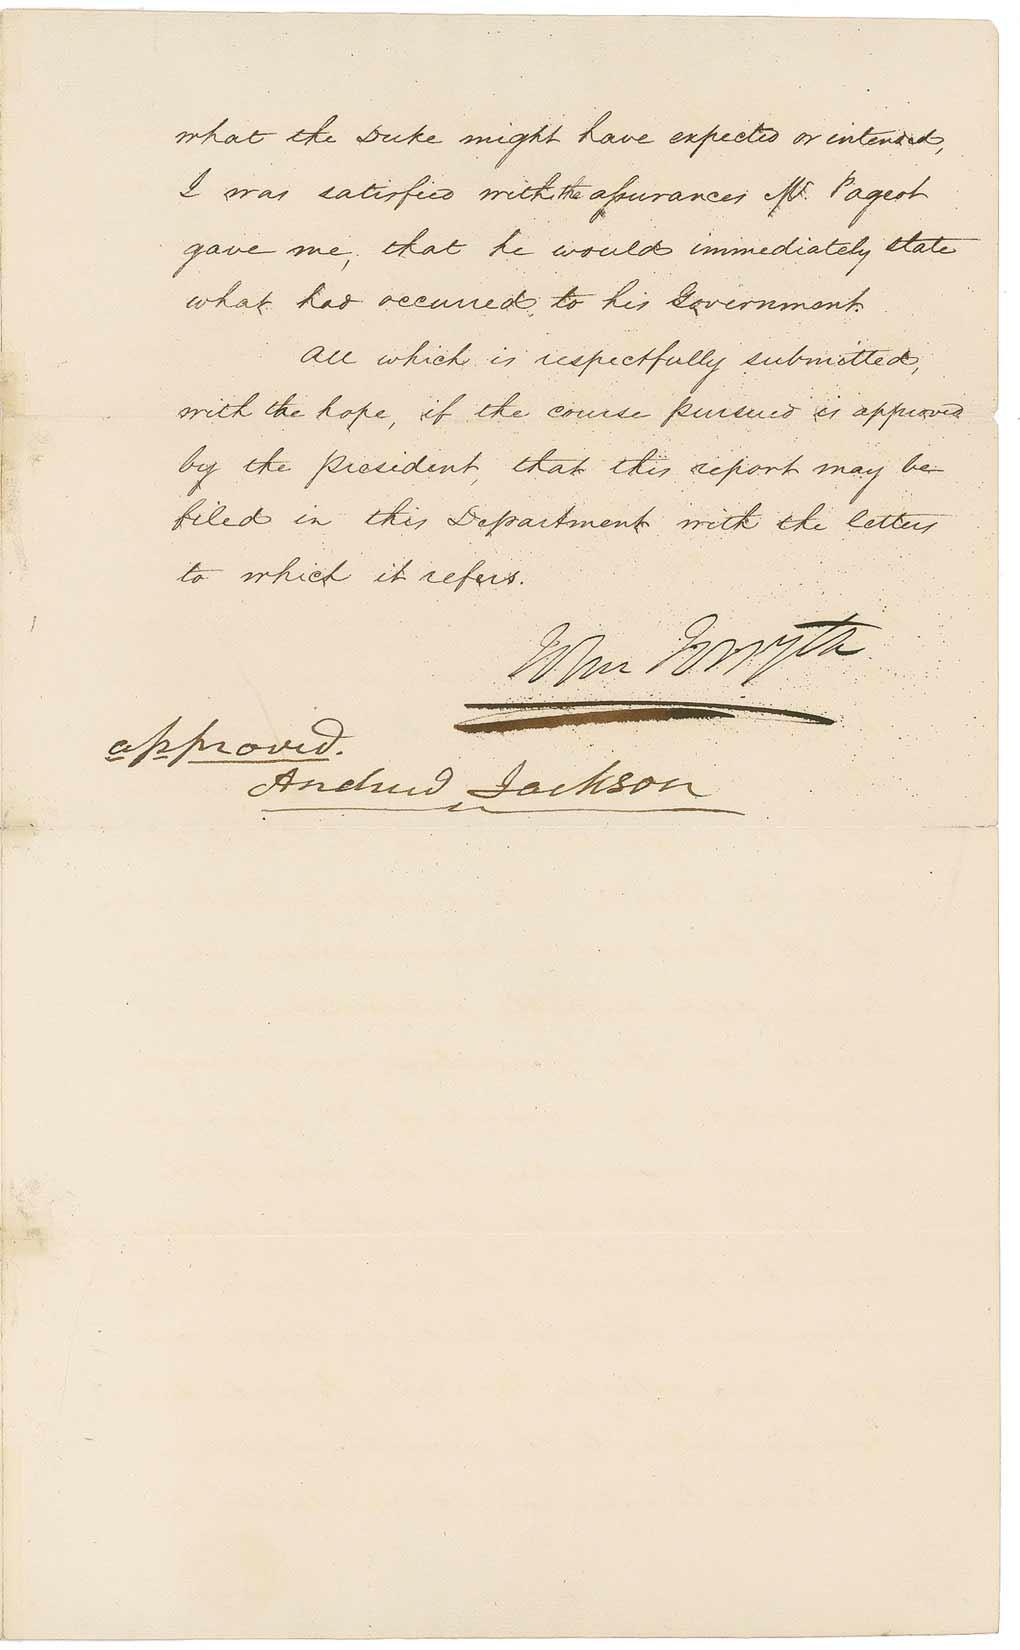 what the Duke might have expected or intended,
I was satisfied with the assurances Mr. Pageot
gave me, that he would immediately state
what had occurred, to his Government.
All which is respectfully submitted,
with the hope, if the course pursued is approved
by the President, that this report may be
filed in this Department with the letters
to which it refers.
John Forsyth
approved.
Andrew Jackson